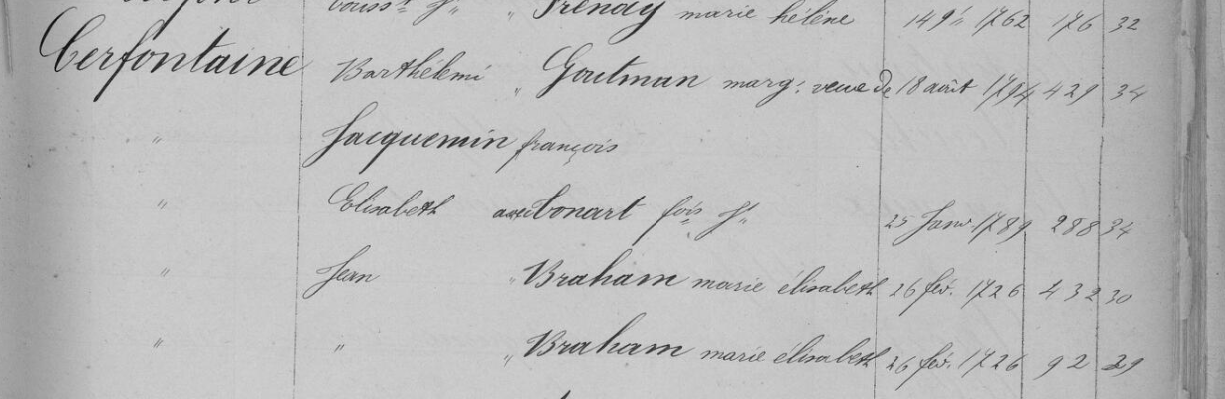 Touss.t J.h " Frenay marie hélène 149.e 1762 176 32
Cerfontaine Barthélemi " Goutman marg. veuve de 18 août 1794 429 34
" Jacquemin françois
" Elisabeth avec Conart fois J.h 25 Janv. 1789 288 34
" Jean " Braham marie élisabeth 26 fév. 1726 432 30
" " " Braham marie élisabeth 26 fév. 1726 92 29